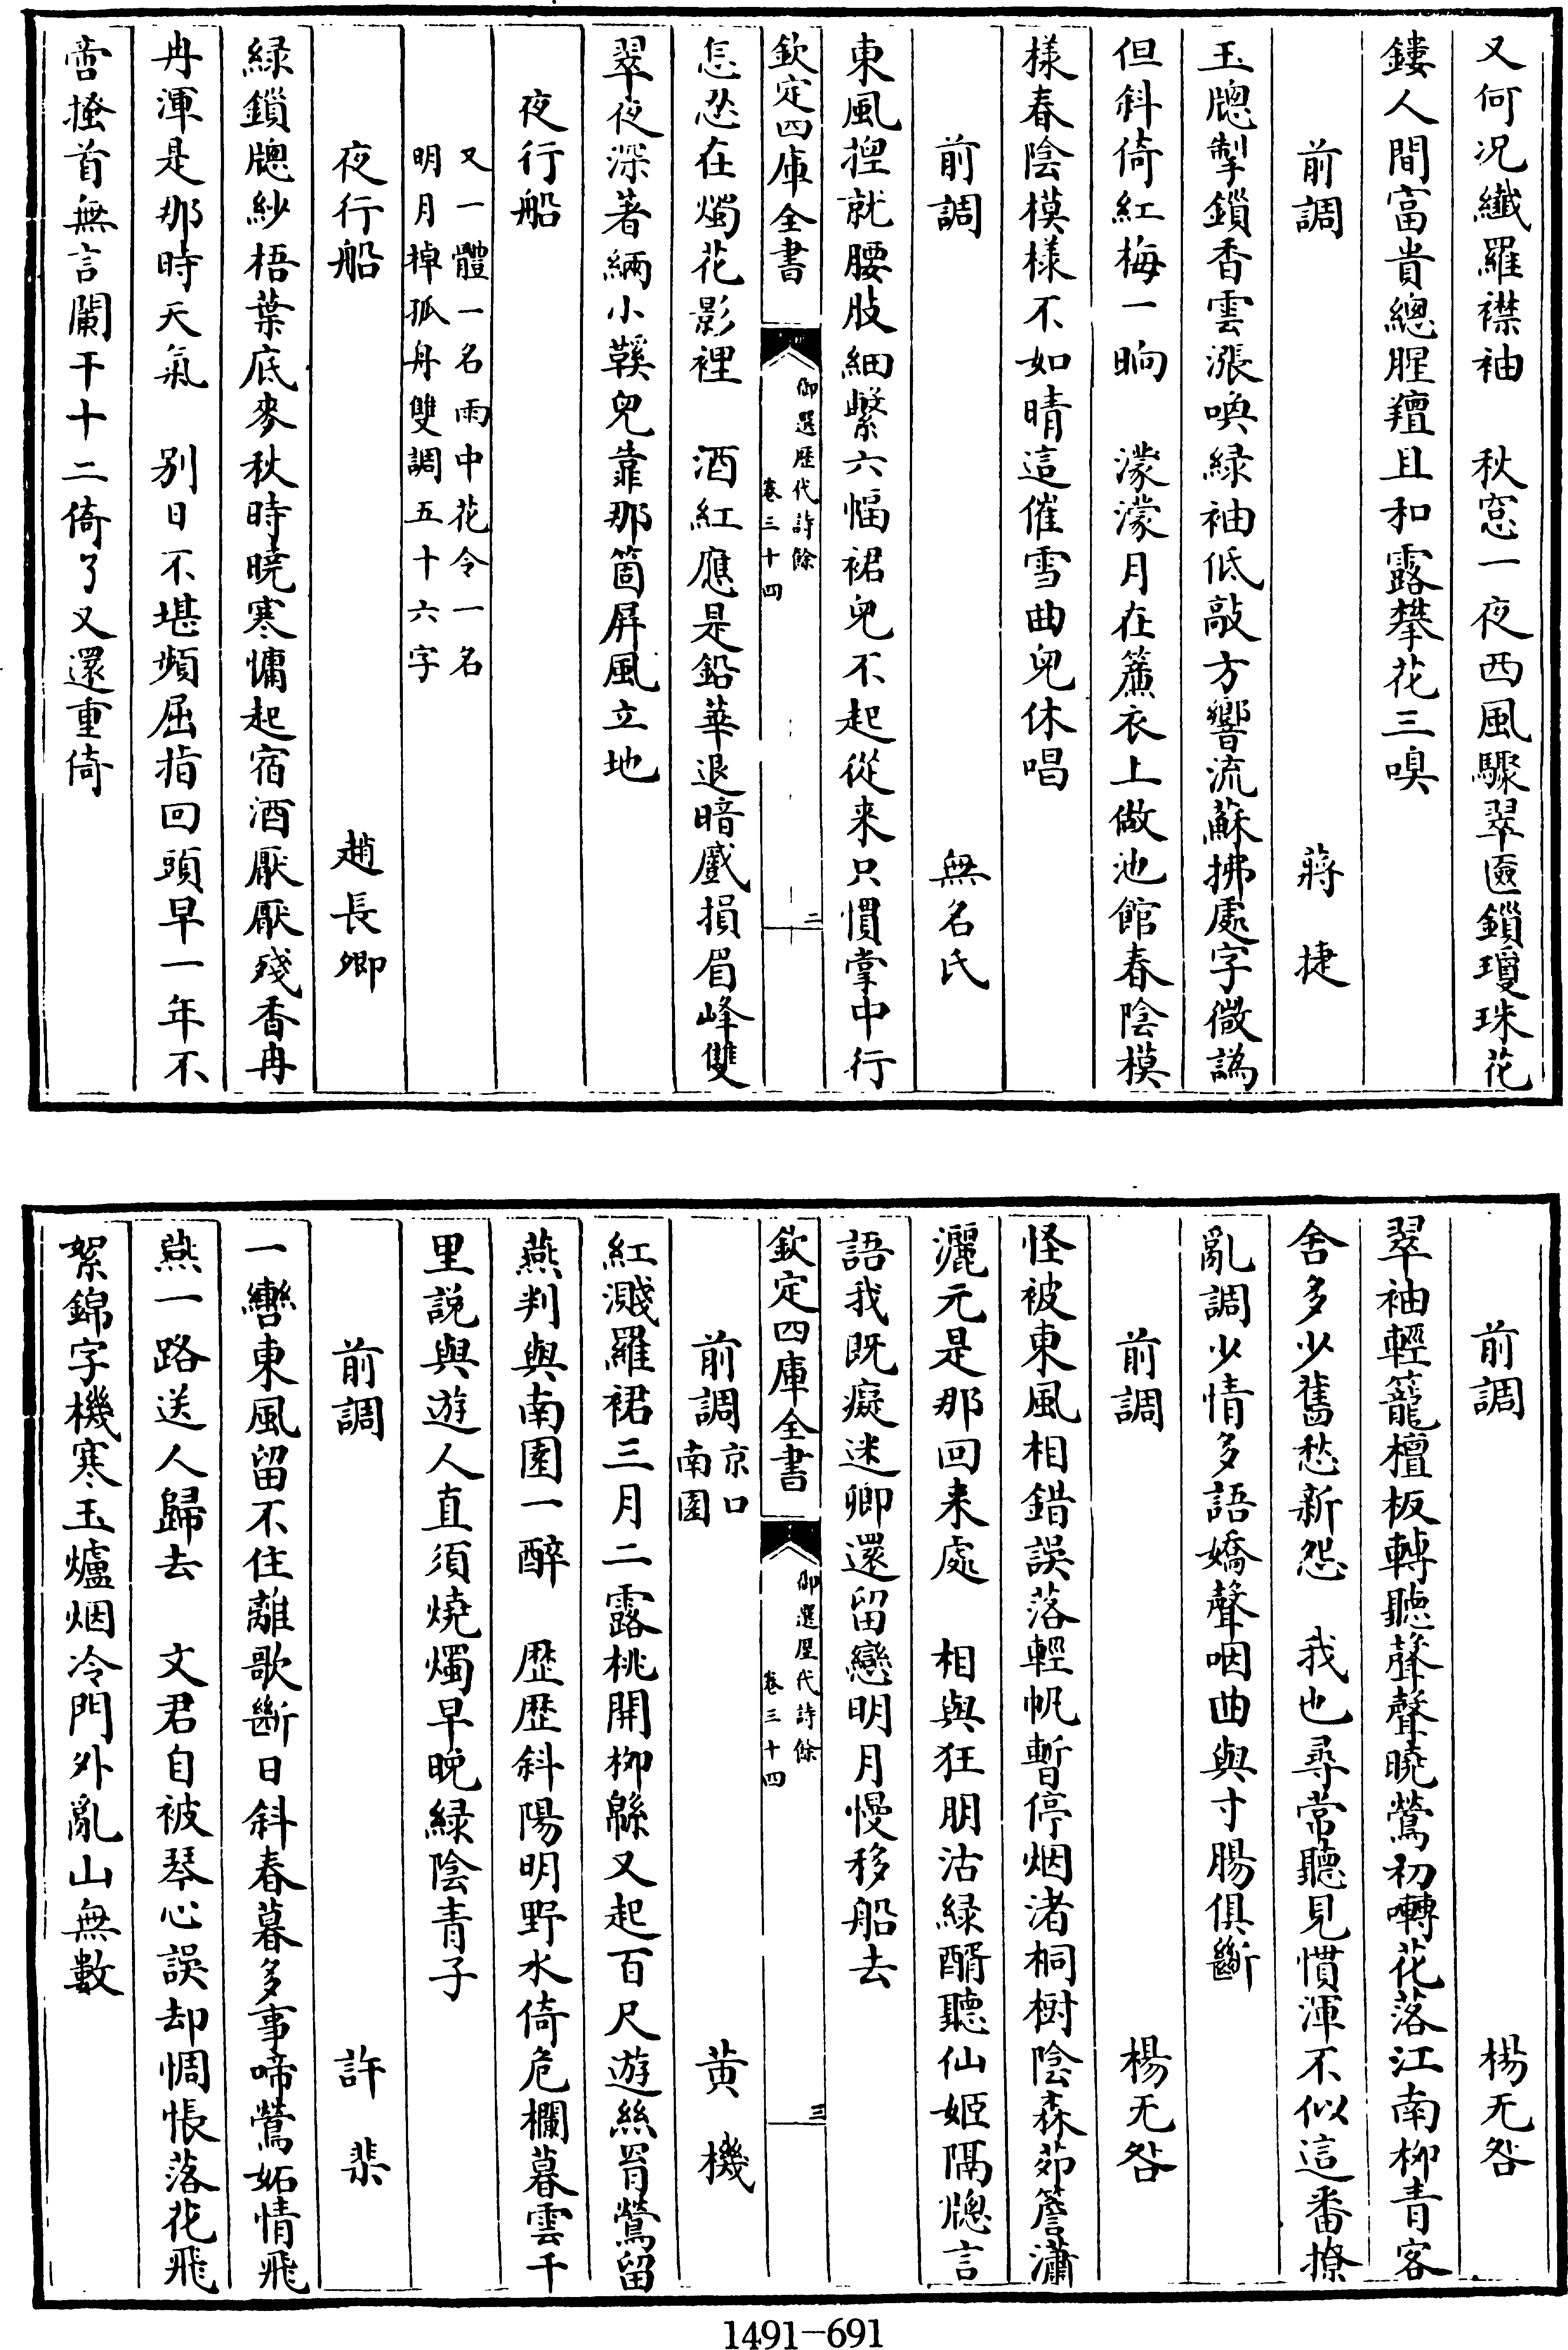 又何况纖羅襟袖　秋窓一夜西風驟翠匳鎖瓊珠花
鏤人間富貴總腥羶且和露攀花三嗅
前調　蔣捷
玉牕掣鎖香雲漲喚緑袖低敲方響流蘇拂處字微譌
但斜倚紅梅一晌　濛濛月在簾衣上做池館春陰模
様春陰模様不如晴這催雪曲兒休唱
前調　無名氏
東風揑就腰肢細繫六幅裙兒不起從来只慣掌中行
欽定四庫全書
御選歴代詩餘
卷三十四
二
怎忍在燭花影裡　酒紅應是鉛華退暗蹙損眉峰雙
翠夜深著緉小鞵兒靠那箇屏風立地
夜行船
又一體一名雨中花令一名
明月棹孤舟雙調五十六字
夜行船　趙長卿
緑鎖牕紗梧葉底麥秋時曉寒慵起宿酒厭厭殘香冉
冉渾是那時天氣　别日不堪頻屈指回頭早一年不
啻搔首無言闌干十二倚了又還重倚
前調　楊无咎
翠袖輕籠檀板轉聽聲聲曉鶯初囀花落江南柳青客
舍多少舊愁新怨　我也尋常聽見慣渾不似這番撩
亂調少情多語嬌聲咽曲與寸腸俱斷
前調　楊无咎
怪被東風相錯誤落輕帆暫停烟渚桐樹陰森茆簷瀟
灑元是那回来處　相與狂朋沽緑醑聽仙姬隔牕言
語我既癡迷卿還留戀明月慢移船去
欽定四庫全書
御選歴代詩餘
卷三十四
三
前調京口南園　黄機
紅濺羅裙三月二露桃開柳緜又起百尺遊絲罥鶯留
燕判與南園一醉　歴歴斜陽明野水倚危欄暮雲千
里説與遊人直須燒燭早晩緑陰青子
前調　許棐
一轡東風留不住離歌斷日斜春暮多事啼鶯妬情飛
燕一路送人歸去　文君自被琴心誤却惆悵落花飛
絮錦字機寒玉爐烟冷門外亂山無數
1491-691